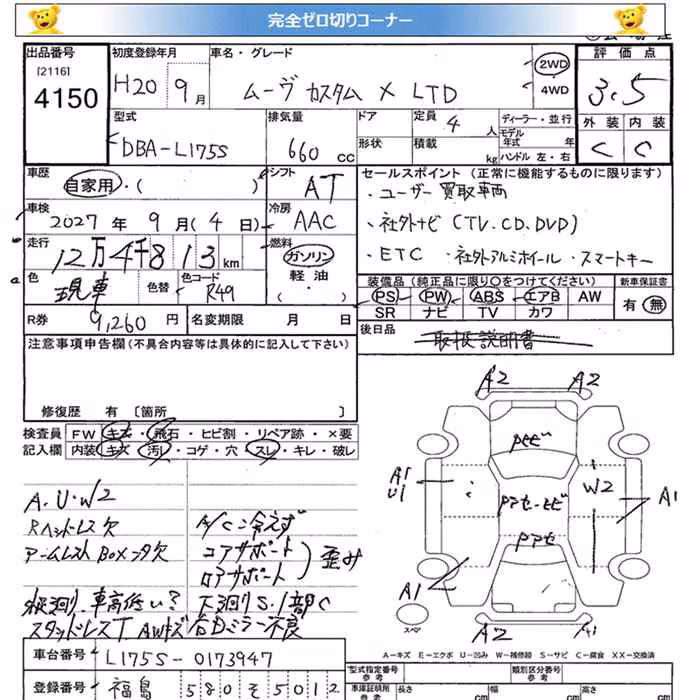 完全ゼロ切りコーナー
出品番号 初度登録年月 車名・グレード 評価点
[2116]
4150 H20 9月 ムーヴ カスタム X LTD 2WD 4WD 3.5
型式 排気量 ドア 定員 4 人 ディーラー・並行 外装 内装
DBA-L175S 660 cc 形状 積載 kg モデル年式 年 ハンドル 左・右 C C
車歴 シフト セールスポイント(正常に機能するものに限ります)
自家用・( ) AT ・ユーザー買取車両
車検 冷房 ・社外ナビ(TV.CD.DVD)
2027年 9月(4日) AAC ・ETC ・社外アルミホイール・スマートキー
走行 燃料
12万4千813km ガソリン
軽油
( ・ )
色 色替 色コード
現車 R49
装備品(純正品に限り○をつけてください) 新車保証書
PS PW ABS エアB AW 有 無
SR ナビ TV カワ
R券 9,260円 名変期限 月 日 後日品 取扱説明書
注意事項申告欄(不具合内容等は具体的に記入して下さい)
修復歴 有 〔箇所 〕
検査員 FW キズ・飛石・ヒビ割・リペア跡・×要
記入欄 内装 キズ・汚レ・コゲ・穴・スレ・キレ・破レ
A.U.W2
Rヘッドレス欠 A/C:冷えず
アームレストBOXフタ欠 コアサポート
ロアサポート
歪み
車高低い? 下廻りS.1部C
スタッドレスT AWキズ 右Dミラー不良
A2 A2
ﾄﾋﾞ
A1
U1
W2
A1
A1
A2 A1
スペア
A-キズ E-エクボ U-凹み W-補修跡 S-サビ C-腐食 XX-交換済
車台番号 L175S-0173947 型式指定番号 参考 類別区分番号 参考
登録番号 福島 580 そ 5012 車庫証明用 参考 長さ cm 幅 cm 高さ cm